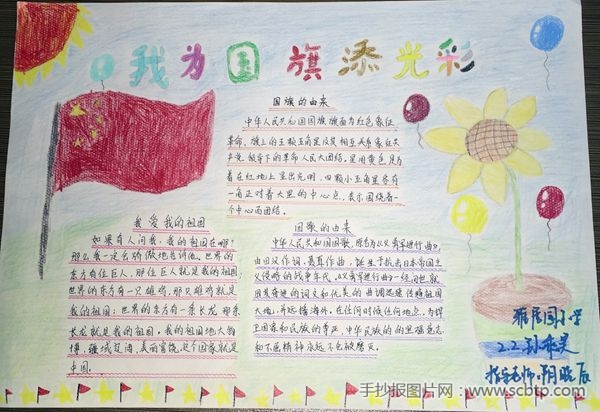 我为国旗添光彩
国旗的由来
中华人民共和国国旗旗面为红色象征
革命,旗上的五颗五角星及其相互关系象征共
产党领导下的革命人民大团结,星用黄色是为
着在红地上显出光明,四颗小五角星各有
一角正对着大星的中心点,表示围绕着一
个中心而团结。
我爱我的祖国
如果有人问我,我的祖国在哪?
那么我一定会骄傲地告诉他,世界的
东方有位巨人,那位巨人就是我的祖国;
世界的东方有一只雄鸡,那只雄鸡就是
我的祖国;世界的东方有一条龙,那条
龙就是我的祖国,我的祖国地大物
博,疆域辽阔,美丽富饶,这个国家就是
中国。
国歌的由来
中华人民共和国国歌,原名为《义勇军进行曲》,
由田汉作词,聂耳作曲,诞生于抗击日本帝国主
义侵略的战争年代,《义勇军进行曲》一经问世,就
用其奋进的词文和优美的曲调迅速传遍祖国
大地,并远播海外。在任何时候任何地点,为捍
卫国家和民族的尊严,中华民族的
和不屈精神永远不会被磨灭。
小学
2.2
指导老师:
手抄报图片网·www.scbto.com